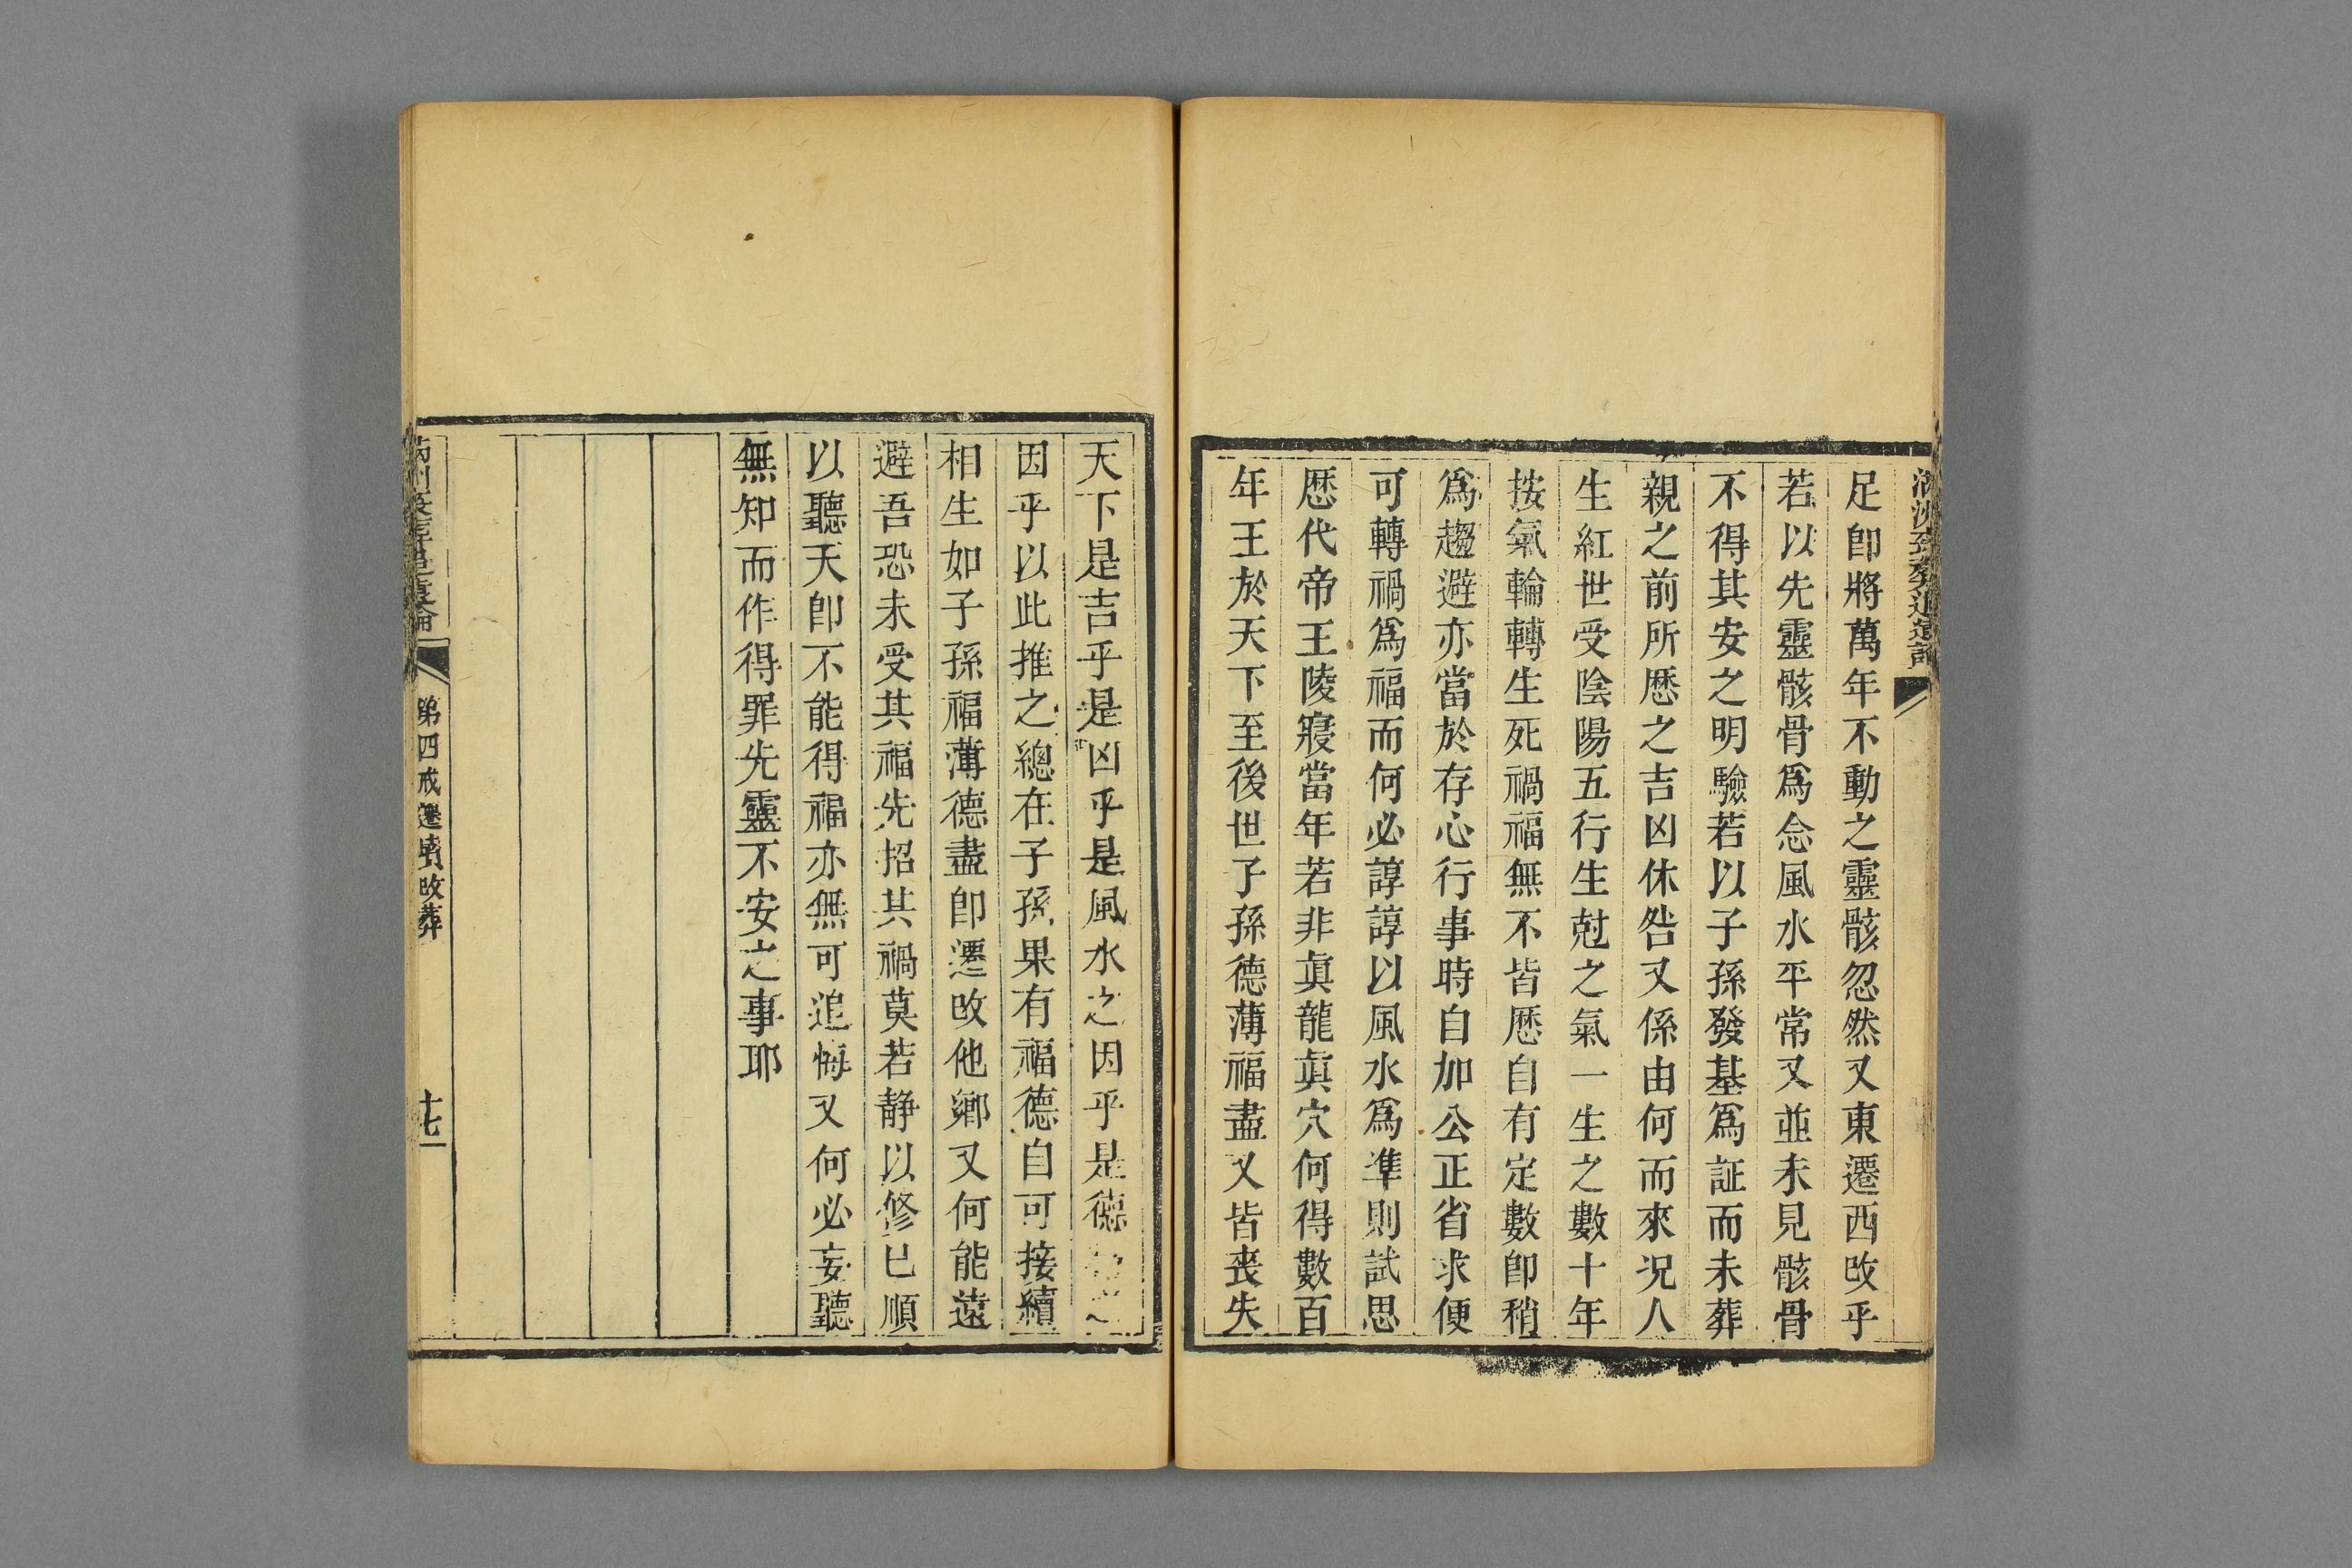 足卽將萬年不動之靈骸忽然又東遷西攺乎
若以先靈骸骨爲念風水平常又並未見骸骨
不得其安之明驗若以子孫發基爲証而未葬
親之前所歷之吉凶休咎又係由何而來况人
生紅世受陰陽五行生尅之氣一生之數十年
按氣輪轉生死禍福無不皆歷自有定數卽稍
爲趨避亦當於存心行事時自加公正省求便
可轉禍爲福而何必諄諄以風水爲準則試思
歷代帝王陵寢當年若非眞龍眞穴何得數百
年王於天下至後世子孫德薄福盡又皆喪失
天下是吉乎是凶乎是風水之因乎是德
因乎以此推之總在子孫果有福德自可接續
相生如子孫福薄德盡卽遷攺他鄉又何能遠
避吾恐未受其福先招其禍莫若静以修已順
以聽天卽不能得福亦無可追悔又何必妄聽
無知而作得罪先靈不安之事耶
第四戒遷墳攺葬
十七